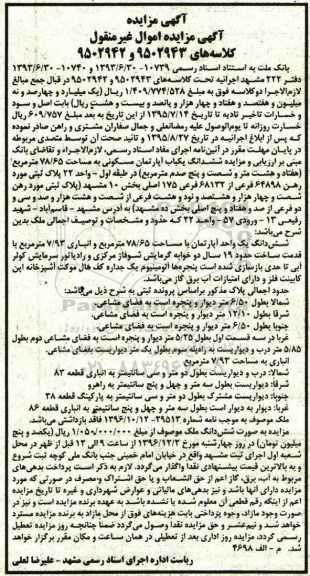 آگهی مزایده
آگهی مزایده اموال غیرمنقول
کلاسه‌های ۹۵۰۲۹۴۳ و ۹۵۰۲۹۴۲
بانک ملت به استناد اسناد رسمی ۱۰۷۳۹- ۱۳۹۳/۶/۳۰ و ۱۰۷۴۰- ۱۳۹۳/۶/۳۰
دفتر ۲۲۲ مشهد اجرائیه تحت کلاسه‌های ۹۵۰۲۹۴۳ و ۹۵۰۲۹۴۲ در قبال جمع مبالغ
لازم‌الاجرا دو کلاسه فوق به مبلغ ۱/۴۰۹/۷۷۴/۵۲۸ ریال (یک میلیارد و چهارصد و نه
میلیون و هفتصد و هفتاد و چهار هزار و پانصد و بیست و هشت ریال) بابت اصل و سود
و خسارات تاخیر تادیه تا تاریخ ۱۳۹۵/۷/۱۴ از این تاریخ به بعد مبلغ ۶۰۹/۷۵۷ ریال
خسارت روزانه تا یوم‌الوصول علیه رمضانعلی و جمال صفاران مشتری و راهن صادر نموده
که پس از ابلاغ اجرائیه در تاریخ ۱۳۹۵/۸/۲۷ و تائید صحت آن توسط متصدی مربوطه
در پایان مهلت مقرر در آئین‌نامه اجرای مفاد اسناد رسمی، لازم‌الاجراء و تقاضای بانک
مبنی بر ارزیابی و مزایده ششدانگ یکباب آپارتمان مسکونی به مساحت ۷۸/۶۵ مترمربع
(هفتاد و هشت متر و شصت و پنج صدم مترمربع) در طبقه اول - واحد ۲۲ پلاک ثبتی مورد
رهن ۶۴۸۹۸ فرعی از ۶۸۱۳۲ فرعی ۱۷۵ اصلی بخش ۱۰ مشهد (پلاک ثبتی مورد رهن
شصت و چهار هزار و هشتصد و نود و هشت فرعی از شصت و هشت هزار و صد و سی و
دو فرعی از صد و هفتاد و پنج اصلی بخش ده مشهد) به آدرس مشهد - قاسم‌آباد - شهید
رفیعی ۱۳ - ورودی ۵۷ - واحد ۲۲ که حدود و مشخصات و توصیف اجمالی ملک بدین
شرح می‌باشد:
شش‌دانگ یک واحد آپارتمان با مساحت ۷۸/۶۵ مترمربع و انباری ۷/۹۳ مترمربع با
قدمت ساخت حدود ۱۹ سال دو خوابه گرمایش شوفاژ مرکزی و رادیاتور سرمایش کولر
آبی تا حدی بازسازی شده است پنجره‌ها آلومینیوم یک جداره کف هال موکت آشپزخانه این
کابینت فلز و دارای امتیازات آب برق گاز می‌باشد.
حدود اجمالی پلاک مذکور براساس پرونده ثبتی به شرح ذیل می‌باشد:
شمالا بطول ۶/۵۰ متر دیوار و پنجره است به فضای مشاعی.
شرقا بطول ۱۲/۱۰ متر دیوار و پنجره است به فضای مشاعی.
جنوبا بطول ۶/۵۰ متر دیوار و پنجره است به فضای مشاعی.
غربا در سه قسمت اول بطول ۵/۲۵ متر دیوار و پنجره است به فضای مشاعی دوم بطول
۵/۸۵ متر درب و دیواریست به راه‌پله سوم بطول یک متر دیواریست بفضای مشاعی.
انباری به مساحت ۷/۹۳ مترمربع
شمالا: درب و دیواریست بطول دو متر و سی سانتیمتر به انباری قطعه ۸۳
شرقا: دیواریست بطول سه متر و چهل و پنج سانتیمتر به راهرو
جنوبا: دیواریست مشترک بطول دو متر و سی سانتیمتر به پارکینگ قطعه ۳۸
غربا: دیوار به دیوار است بطول سه متر و چهل و پنج سانتیمتر به انباری قطعه ۸۶
ملک موصوف به موجب نامه شماره ۳۹۵۱۳- ۱۳۹۶/۱۰/۱۲ فاقد بازداشتی می‌باشد.
مزایده به صورت شش‌دانگ ملک موصوف از مبلغ ۱/۰۵۰/۰۰۰/۰۰۰ ریال (یکصد و پنج
میلیون تومان) در روز چهارشنبه مورخ ۱۳۹۶/۱۲/۲ از ساعت ۹ الی ۱۲ قبل از ظهر در محل
شعبه اول اجرای ثبت مشهد واقع در خیابان امام خمینی جنب بانک ملی کوچه ثبت شروع
و به بالاترین قیمت پیشنهادی نقدا واگذار می‌گردد. لازم به ذکر است پرداخت بدهی‌های
مربوط به آب، برق، گاز اعم از حق انشعاب و یا حق اشتراک و مصرف در صورتی که مورد
مزایده دارای آنها باشد و نیز بدهی‌های مالیاتی و عوارض شهرداری و غیره تا تاریخ مزایده
اعم از اینکه رقم قطعی آن معلوم شده یا نشده باشد به عهده برنده مزایده است و نیز در
صورت وجود مازاد، وجوه پرداختی بابت هزینه‌های فوق از محل مازاد به برنده مزایده مسترد
خواهد شد و نیم‌عشر و حق مزایده نقدا وصول می‌گردد ضمنا چنانچه روز مزایده تعطیل
رسمی گردد، مزایده روز اداری بعد از تعطیلی در همان ساعت و مکان مقرر برگزار خواهد
شد. م - الف ۴۶۹۸
ریاست اداره اجرای اسناد رسمی مشهد - علیرضا لعلی